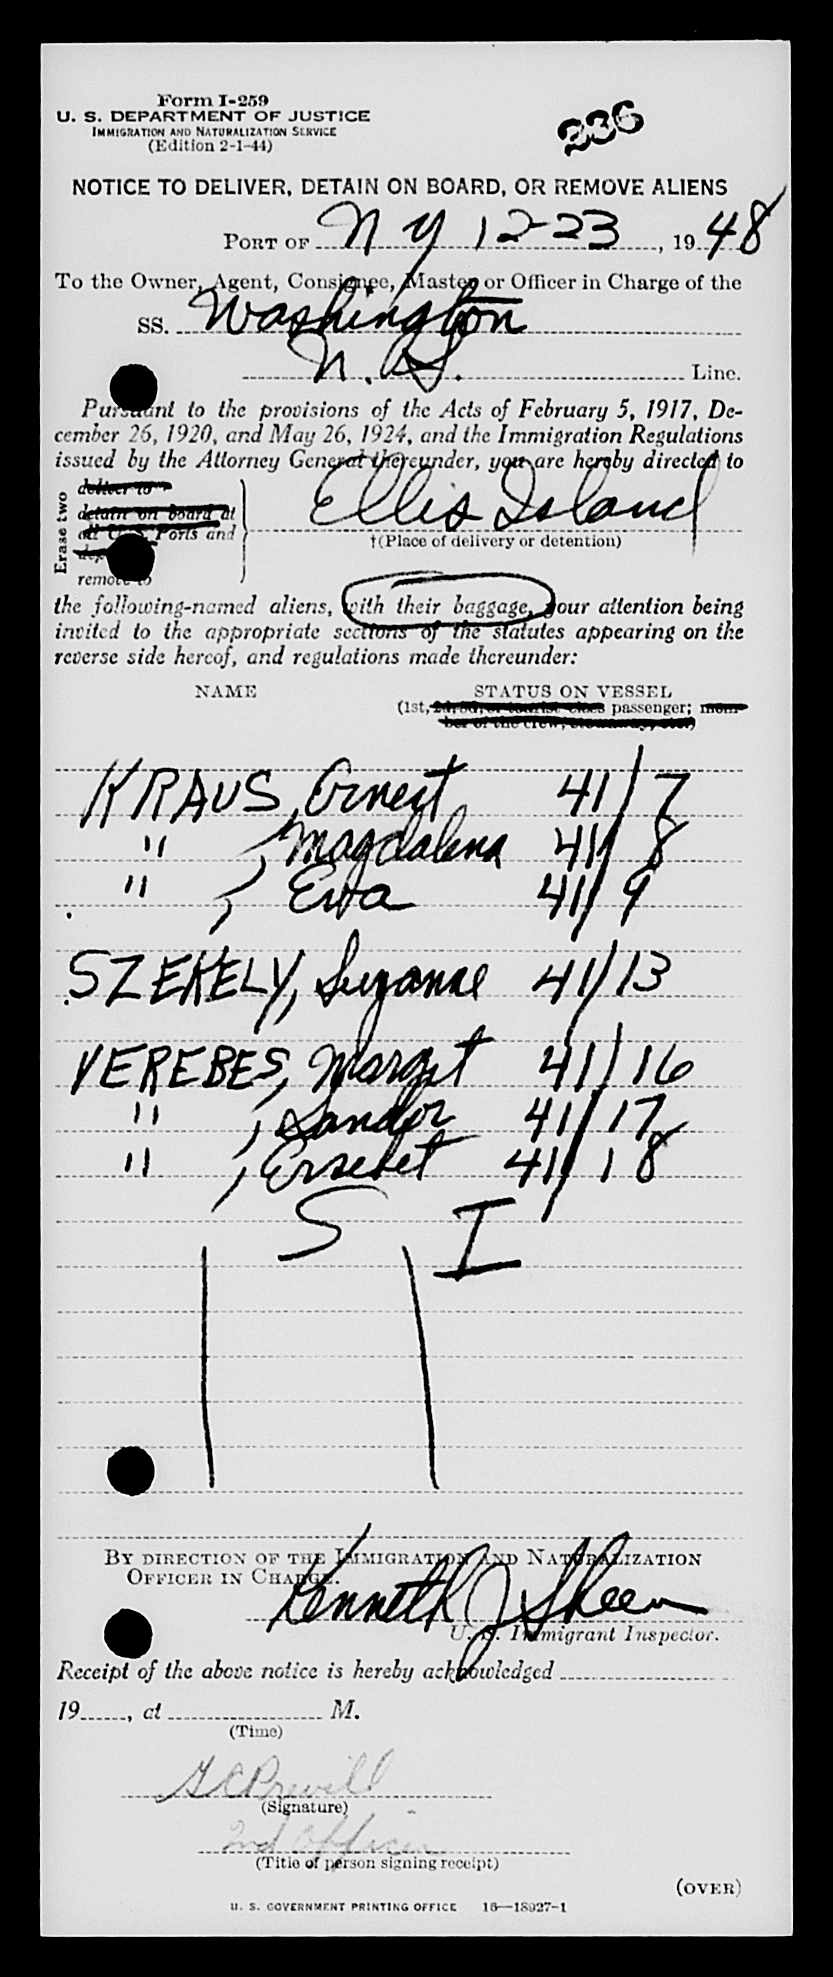 Form I-259
U. S. DEPARTMENT OF JUSTICE
IMMIGRATION AND NATURALIZATION SERVICE
(Edition 2-1-44)
236
NOTICE TO DELIVER, DETAIN ON BOARD, OR REMOVE ALIENS
PORT OF N Y 12-23, 1948
To the Owner, Agent, Consignee, Master or Officer in Charge of the
SS. Washington
Line.
Pursuant to the provisions of the Acts of February 5, 1917, De-
cember 26, 1920, and May 26, 1924, and the Immigration Regulations
issued by the Attorney General thereunder, you are hereby directed to
Erase two
deliver to
detain on board at
all U. S. Ports and
remove to
Ellis Island
†(Place of delivery or detention)
the following-named aliens, with their baggage, your attention being
invited to the appropriate sections of the statutes appearing on the
reverse side hereof, and regulations made thereunder:
NAME STATUS ON VESSEL
(1st, 2d, 3d, or tourist class passenger; mem-
ber of the crew, stowaway, etc.)
KRAUS, Ernest 41/7
" , Magdalena 41/8
" , Eva 41/9
SZEKELY, Suzanne 41/13
VEREBES, Margit 41/16
" , Sandor 41/17
" , Ersebet 41/18
S I
BY DIRECTION OF THE IMMIGRATION AND NATURALIZATION
OFFICER IN CHARGE.
Kenneth J Sheen
U. S. Immigrant Inspector.
Receipt of the above notice is hereby acknowledged
19 , at M.
(Time)
(Signature)
2nd Officer
(Title of person signing receipt)
(OVER)
U. S. GOVERNMENT PRINTING OFFICE 16—18927-1